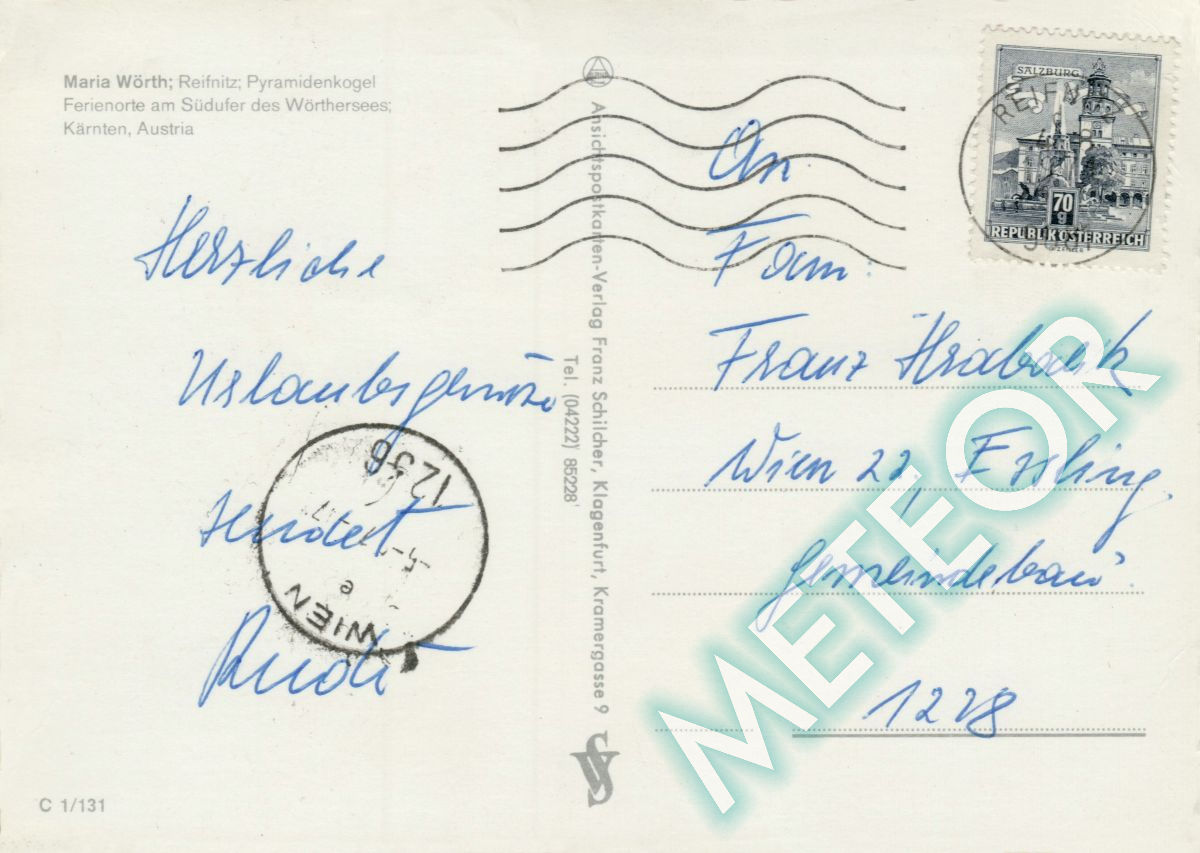 Maria Wörth; Reifnitz; Pyramidenkogel
Ferienorte am Südufer des Wörthersees;
Kärnten, Austria
Herzliche
Urlaubsgrüße
sendet
Rudi
WIEN
1236
e
C 1/131
Ansichtspostkarten-Verlag Franz Schilcher, Klagenfurt, Kramergasse 9
Tel. (04222) 85228
SALZBURG
70
g
REPUBLIK ÖSTERREICH
An
Fam:
Franz
Wien 22, Essling,
Gemeindebau.
1228
METEOR